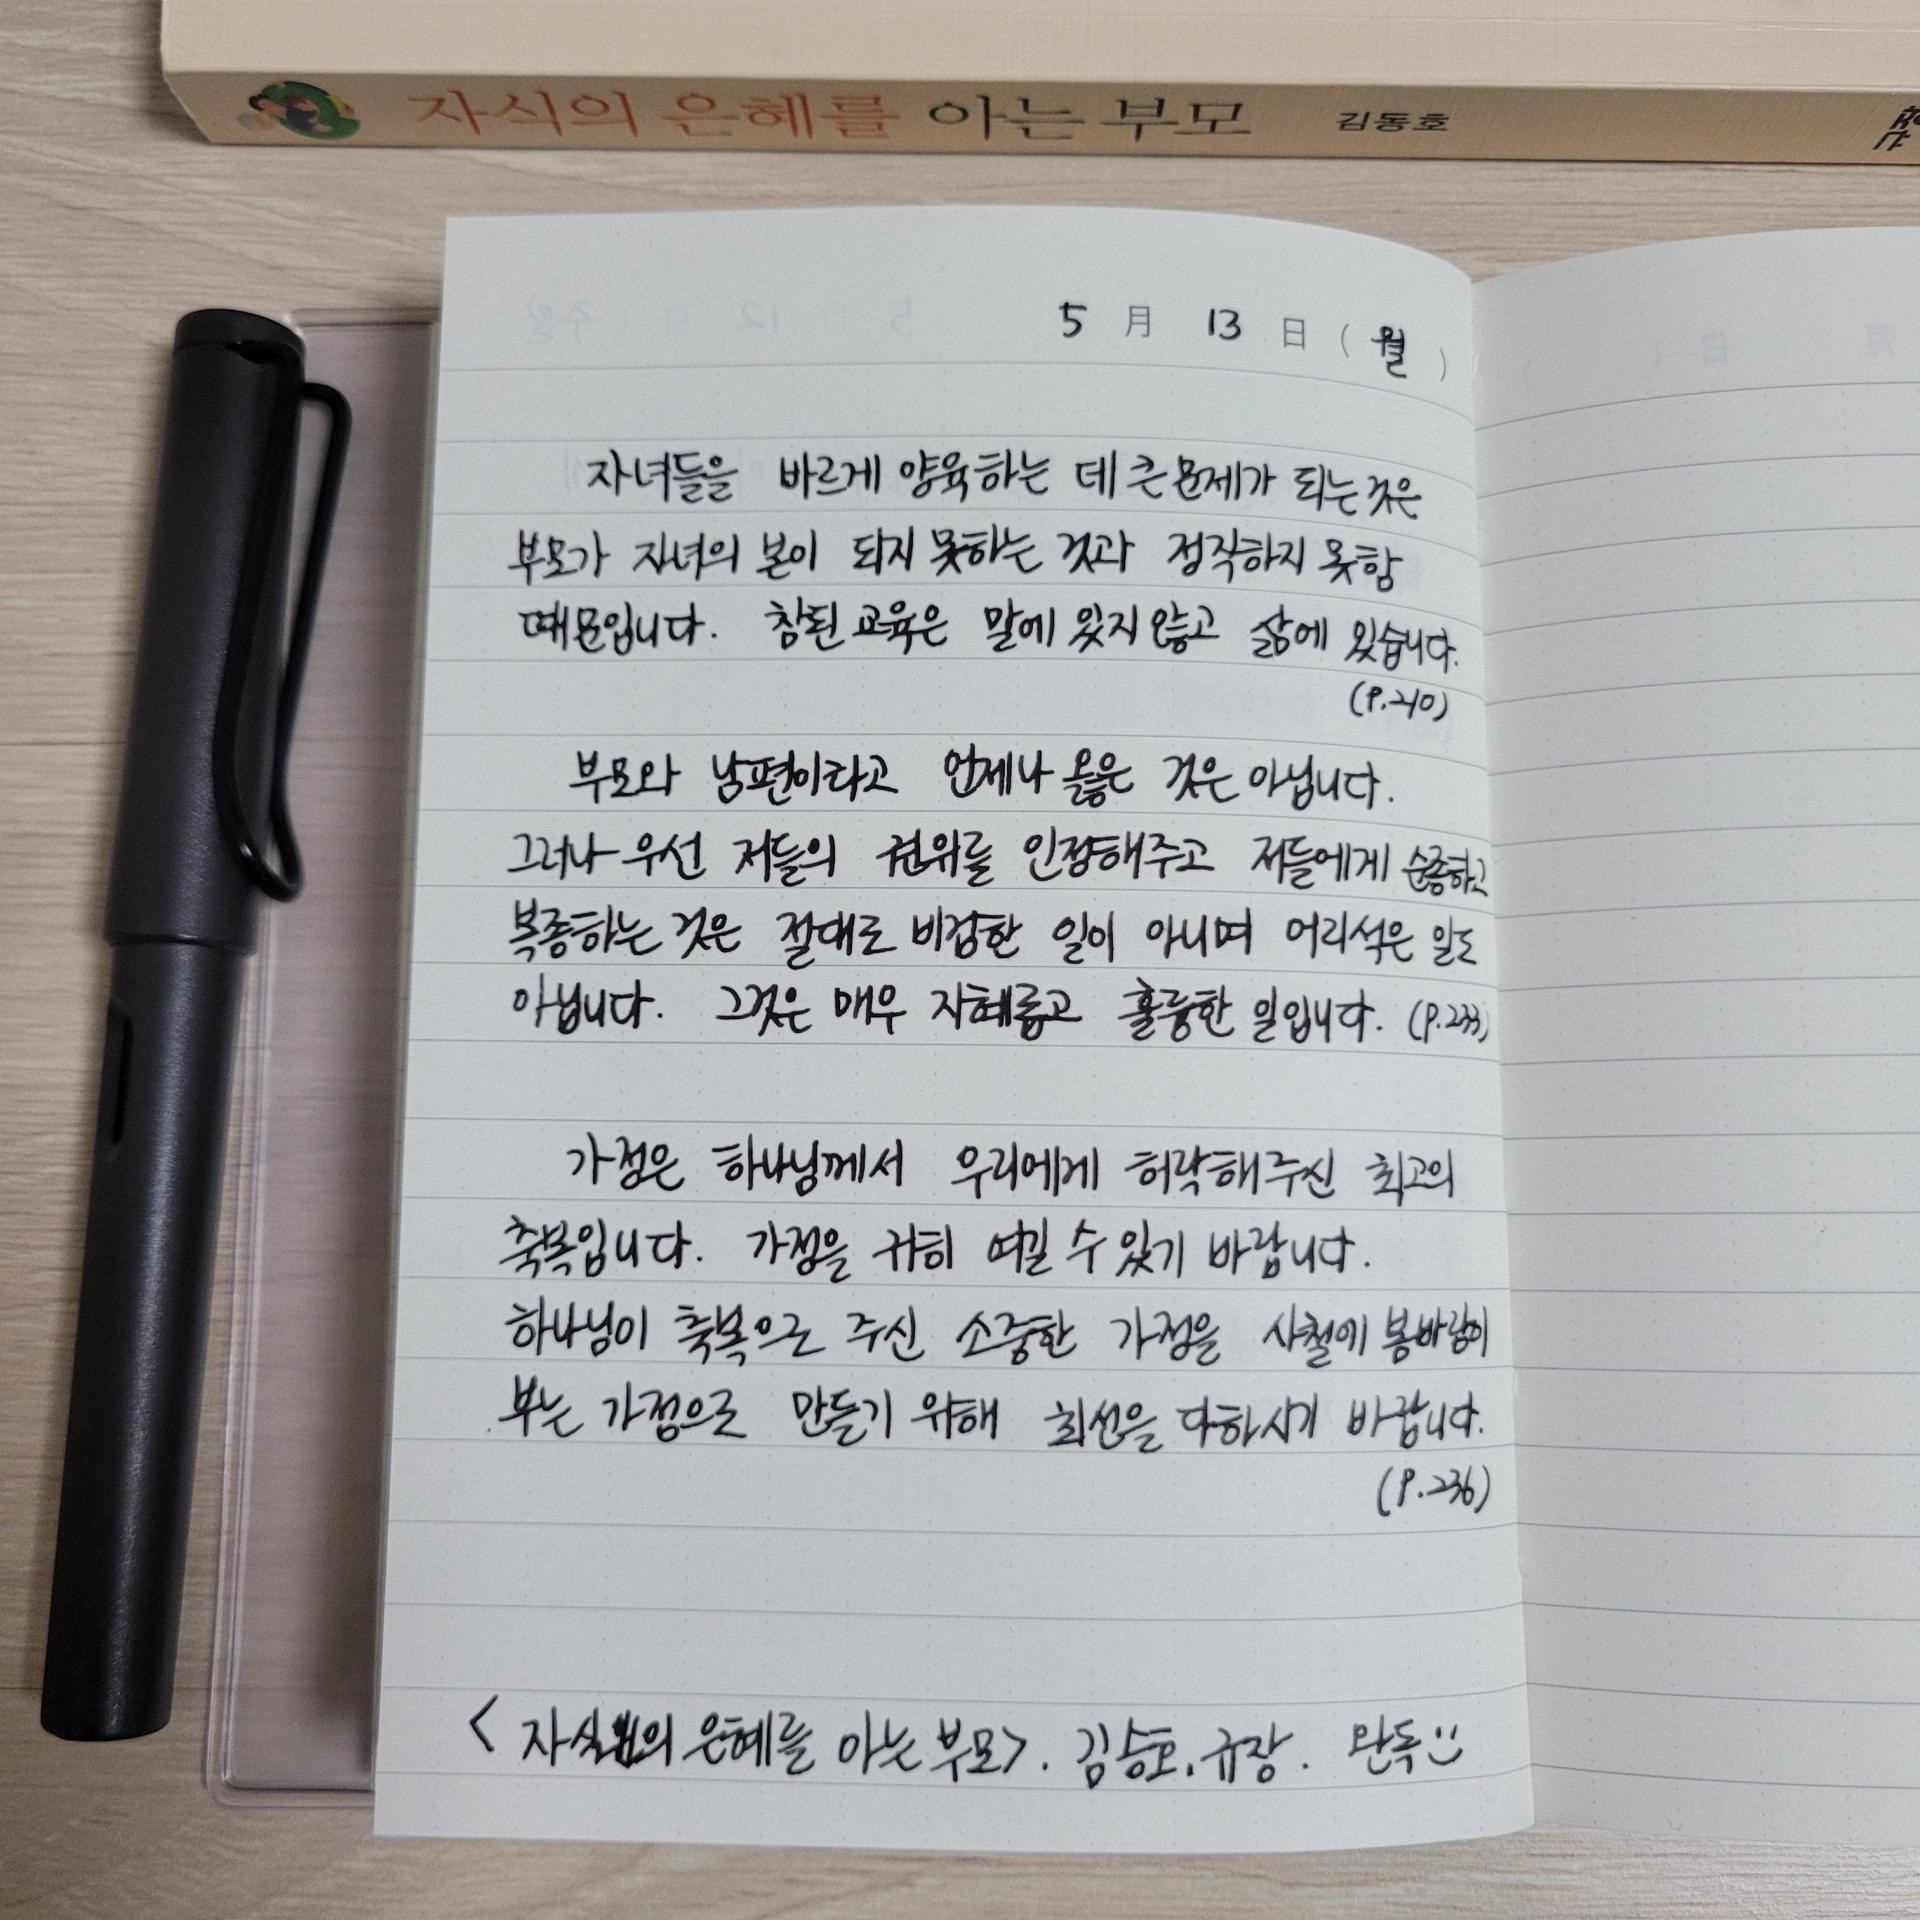 자식의 은혜를 아는 부모 김동호
5 月 13 日 (월)
자녀들을 바르게 양육하는 데 큰 문제가 되는 것은
부모가 자녀의 본이 되지 못하는 것과 정직하지 못함
때문입니다. 참된 교육은 말에 있지 않고 삶에 있습니다.
(P.210)
부모와 남편이라고 언제나 옳은 것은 아닙니다.
그러나 우선 저들의 권위를 인정해주고 저들에게 순종하고
복종하는 것은 절대로 비겁한 일이 아니며 어리석은 일도
아닙니다. 그것은 매우 지혜롭고 훌륭한 일입니다. (P.233)
가정은 하나님께서 우리에게 허락해주신 최고의
축복입니다. 가정을 귀히 여길 수 있기 바랍니다.
하나님이 축복으로 주신 소중한 가정을 사철에 봄바람이
부는 가정으로 만들기 위해 최선을 다하시기 바랍니다.
(P.236)
<자식의 은혜를 아는 부모>. 김승호, 규장. 완독